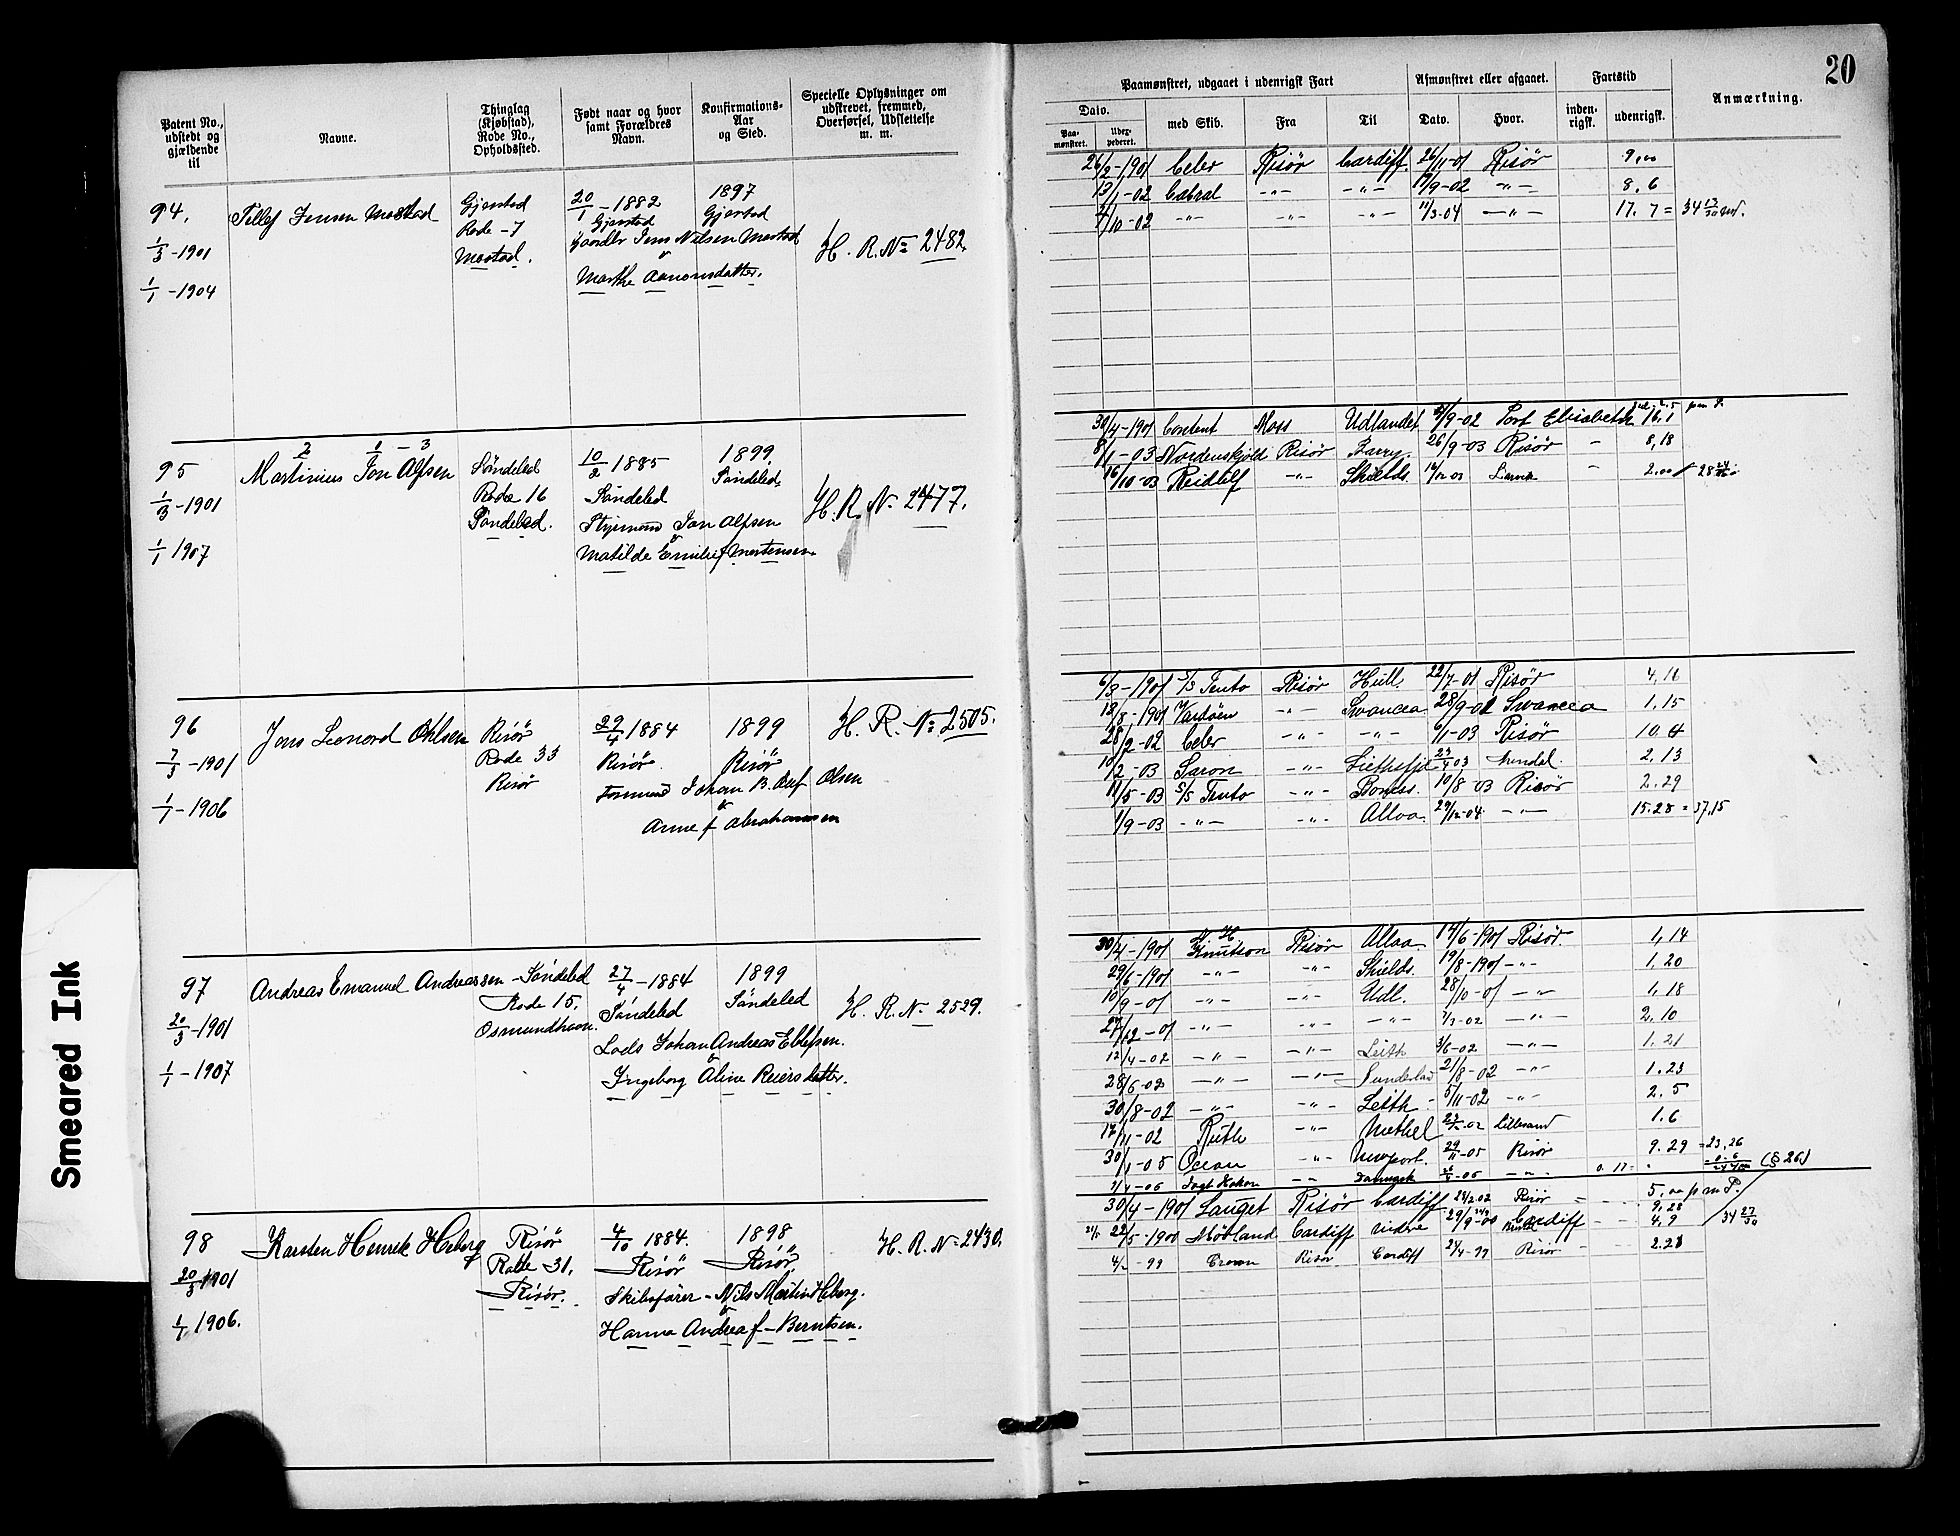 20
Patent No., udstedt og gjældende til
Navne.
Thinglag (Kjøbstad), Rode No., Opholdssted.
Født naar og hvor samt Forældres Navn.
Konfirmations-Aar og Sted.
Specielle Oplysninger om udskrevet, fremmed, Overførsel, Udslettelse m. m.
Paamønstret, udgaaet i udenrigsk Fart
Dato.
Paa-mønstret.
med Skib.
Fra
Til
Afmønstret eller afgaaet.
Dato.
Hvor.
Fartstid
inden-rigsk.
udenrigsk.
Anmærkning.
94.
1/3 - 1901
1/1 - 1904
Tellef Jensen Mostad
Gjerstad
Rode - 7
Mostad.
20/1 - 1882
Gjerstad
Jens Nilsen Mostad
Marthe Aanonsdatter.
1897
Gjerstad
H. R. No 2482.
26/2 - 1901 Celer Risör Cardiff. 26/11-01 Risör 9,00
13/1-02 Cabral -"- -"- 17/9-02 -"- 8.6
7/10-02 -"- -"- -"- 11/3-04 -"- 17.7 =
95
1/3 - 1901
1/1 1907
2 1 - 3
Martinius Jon Alfsen
Söndeled
Rode 16
Söndeled.
10/2 1885
Söndeled
Styrmand Jon Alfsen
Matilde Emilie f Mortensen
1899
Söndeled.
H. R. No 2477.
30/4-1901 Content Moss Udlandet /9-02 Port Elisabeth 16.1
8/1-03 Nordenskjold Risör Barry. 26/9-03 Risör - 8,18
16/10-03 Reidulf -"- Shields. - 2.00
96
7/3 - 1901
1/1 - 1906
Jens Leonord Ohlsen
Risör
Rode 33
Risör
29/4 1884
Risör
Johan B. Olaf Olsen
Anne f Abrahamsen
1899
Risör
H. R. No 2505.
6/3-1901 S/S Tento Risör Hull. 22/7-01 Risör 4,16
12/8-1901 Vardöen -"- Swansea 28/9-01 Swansea 1,15
28/2-02 Celer -"- -"- 6/1-03 Risör 10.
10/2-03 Saron -"- Arendal 2,13
11/5-03 S/S Tento -"- Boness. 10/8 03 Risör 2.29
1/9-03 -"- -"- Alloa. 29/12-04 -"- 15.28 = 37,15
97
20/3 - 1901
1/1 - 1907
Andreas Emanuel Andreassen
Söndeled
Rode 15,
Osmundhavn.
27/4 - 1884
Söndeled
Lods Johan Andreas Ellefsen.
Ingeborg Oline Reiersdatter.
1899
Söndeled
H. R. No 2529.
30/4-1901 Knutson Risör Alloa. 14/6-1901 Risör 1,14
29/6-1901 -"- -"- Shields. 19/8-1901 -"- 1.20
10/9-01 -"- -"- Udl. 28/10-01 -"- 1,18
27/12-01 -"- -"- -"- 7/3-02 -"- 2,10
12/4-02 -"- -"- Leith 3/6-02 -"- 1.21
28/6-02 -"- -"- Sunderland 21/8-02 -"- 1.23
30/8-02 -"- -"- Leith 5/11-02 -"- 2.5
17/11-02 Ruth -"- Methel Lillesand 1.6
30/1-05 Ocean -"- Newport. 29/11-05 Risör 9.29 = 23,26
Danmark -06 -"- (§ 26)
98
20/3 1901
1/1 1906.
Karsten Henrik Heberg
Risör
Rode 31,
Risör.
4/10 1884.
Risör
Skibsfører - Nils Martin Heberg.
Hanna Andrea f - Berntsen.
1898
Risör
H. R. No 2430.
30/4-1901 Lauget Risör Cardiff Risör 5.00 p m P.
22/5-1900 Möbland Cardiff videre Cardiff 4,9 34 27/30
4/2-99 Crown Risör Cardiff 24/4-99 Risör 2.21
Smeared Ink